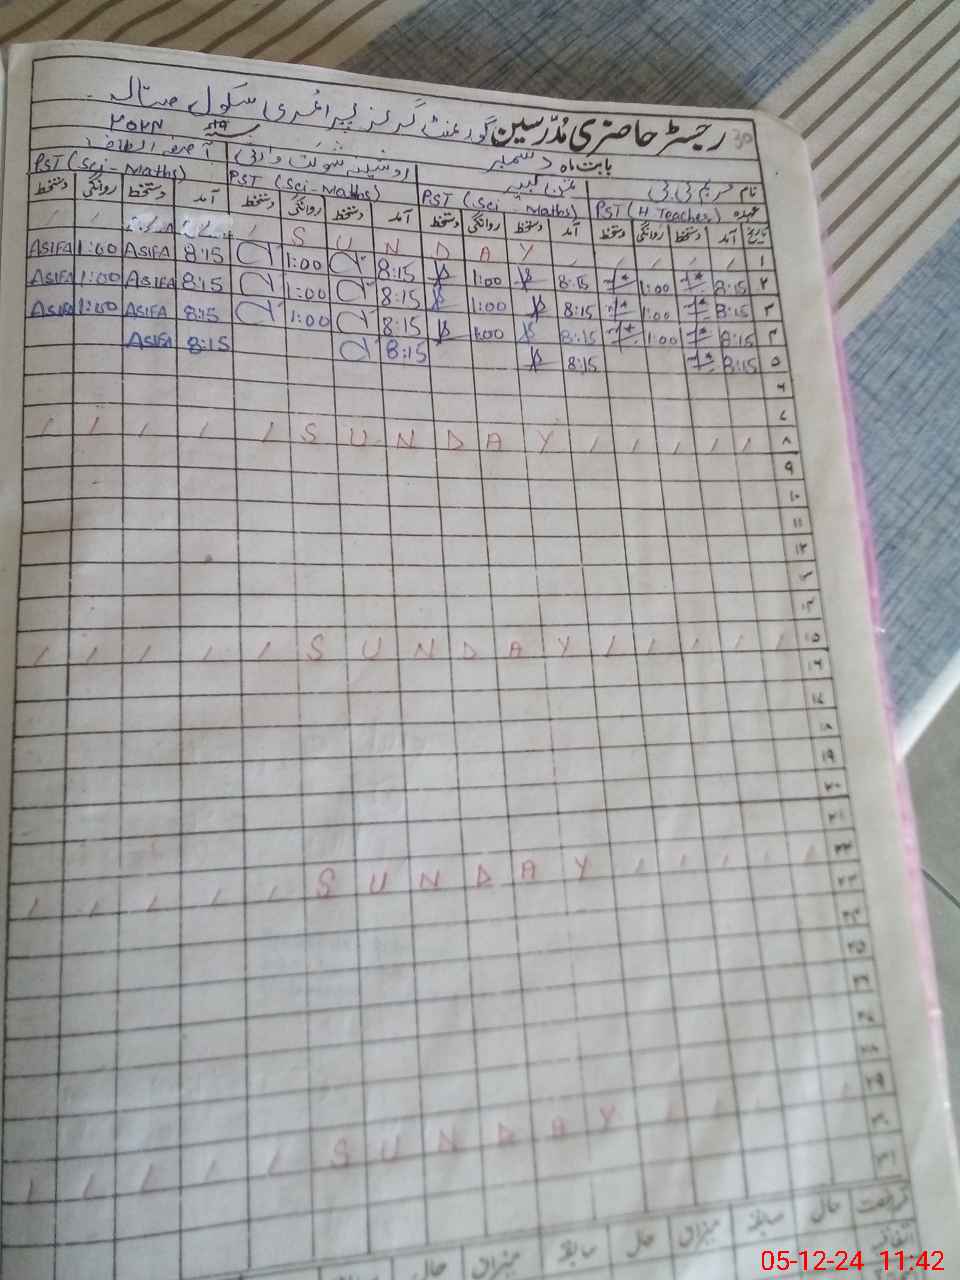 30
رجسٹر حاضری مدرسین گورنمنٹ گرلز پرائمری سکول
بابت ماہ دسمبر سنہ ۲۰۲۴
نام
عہدہ PST (H. Teacher) PST (Sci - Maths) PST (Sci - Maths) PST (Sci - Maths)
تاریخ آمد دستخط روانگی دستخط آمد دستخط روانگی دستخط آمد دستخط روانگی دستخط آمد دستخط روانگی دستخط
۱ S U N D A Y
۲ 8:15 1:00 8:15 1:00 8:15 1:00 8:15 ASIFA 1:00 ASIFA
۳ 8:15 1:00 8:15 1:00 8:15 1:00 8:15 ASIFA 1:00 ASIFA
۴ 8:15 1:00 8:15 1:00 8:15 1:00 8:15 ASIFA 1:00 ASIFA
۵ 8:15 8:15 8:15 8:15 ASIFA
۶
۷
۸ S U N D A Y
۹
۱۰
۱۱
۱۲
۱۳
۱۴
۱۵ S U N D A Y
۱۶
۱۷
۱۸
۱۹
۲۰
۲۱
۲۲ S U N D A Y
۲۳
۲۴
۲۵
۲۶
۲۷
۲۸
۲۹ S U N D A Y
۳۰
۳۱
حال سابقہ میزان حال سابقہ میزان حال
05-12-24 11:42